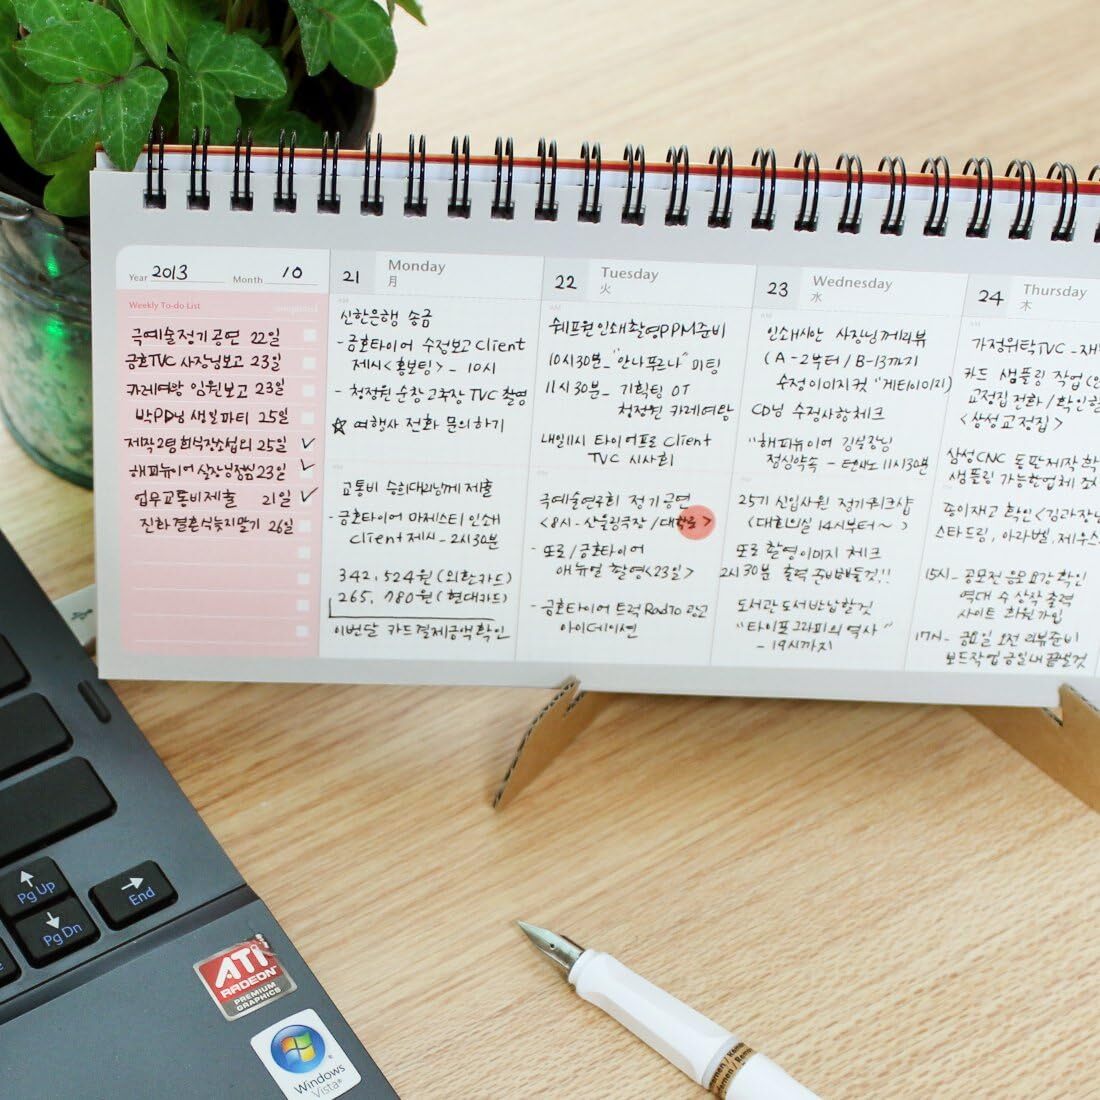 Year 2013 Month 10
Weekly To-do List
극예술정기공연 22일
금호TVC 사장님보고 23일
카레여왕 임원보고 23일
박PD님 생일파티 25일
제작2팀 회식장소섭외 25일 ✓
해피뉴이어 실장님점심 23일 ✓
업무교통비제출 21일 ✓
진화결혼식늦지말기 26일
21 Monday
月
AM
신한은행 송금
- 금호타이어 수정보고 Client
제시<홍보팀> - 10시
- 청정원 순창고추장 TVC 촬영
☆ 여행사 전화 문의하기
교통비 승희대리님께 제출
- 금호타이어 마제스티 인쇄
Client제시 - 2시30분
342,524원 (외환카드)
265,780원 (현대카드)
이번달 카드결제금액확인
22 Tuesday
火
쉐프원인쇄촬영PPM준비
10시30분_"안나푸르나" 미팅
11시30분_ 기획팀 OT
청정원 카레여왕
내일11시 타이어프로 Client
TVC 시사회
극예술연구회 정기공연
<8시-산울림극장/대학로>
- 또로/금호타이어
애뉴얼 촬영<23일>
- 금호타이어 트럭 Radio 광고
아이데이션
23 Wednesday
水
인쇄시안 사장님께리뷰
(A-2부터/B-13까지
수정이미지컷 "게티이미지)
CD님 수정사항체크
"해피뉴이어 김부장님
점심약속 - 11시30분
25기 신입사원 정기워크샵
(대회의실 14시부터~)
또로촬영이미지 체크
2시30분 출력 준비해둘것!!
도서관도서반납할것
"타이포그라피의 역사"
- 19시까지
24 Thursday
木
가정위탁TVC -
카드 샘플링 작업
교정집전화/확인할
<삼성교정집>
삼성CNC 동판제작
샘플링 가능한업체
종이재고 확인<김과장님
스타드림, 아라벨, 제우스
15시_ 공모전 응모요강확인
역대 수상작 출력
사이트 회원가입
17시_ 금요일 오전 리뷰준비
보드작업 금일내 끝낼것
Pg Up
Pg Dn
End
ATI
RADEON
PREMIUM
GRAPHICS
Windows
Vista